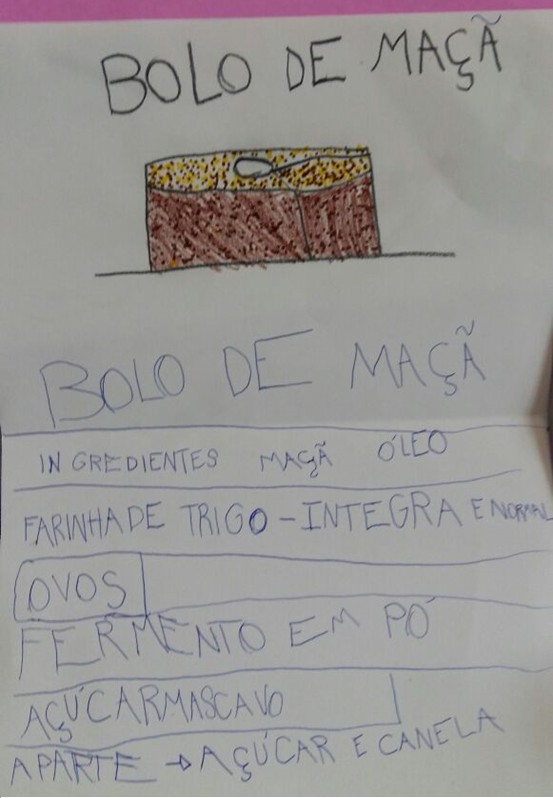 BOLO DE MAÇÃ
BOLO DE MAÇÃ
INGREDIENTES MAÇÃ ÓLEO
FARINHA DE TRIGO - INTEGRA E NORMAL
OVOS
FERMENTO EM PÓ
AÇÚCARMASCAVO
APARTE → AÇÚCAR E CANELA